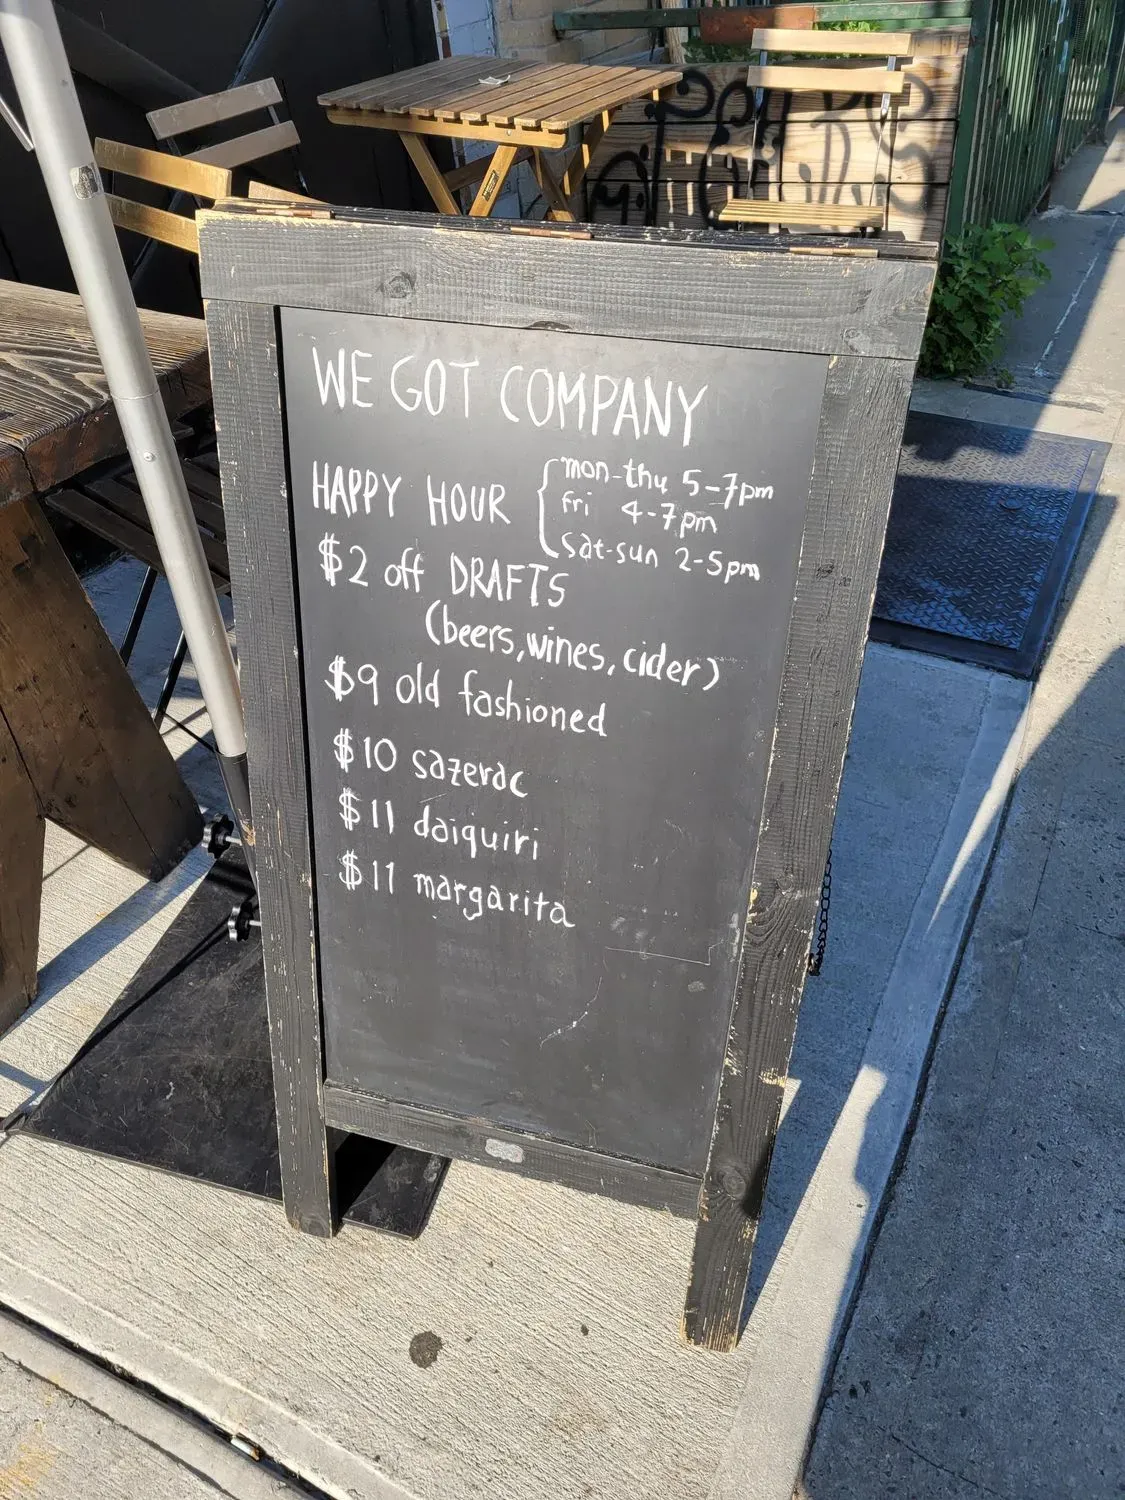 WE GOT COMPANY
HAPPY HOUR { mon-thu 5-7pm
fri 4-7pm
sat-sun 2-5pm
$2 off DRAFTS
(beers, wines, cider)
$9 old fashioned
$10 sazerac
$11 daiquiri
$11 margarita